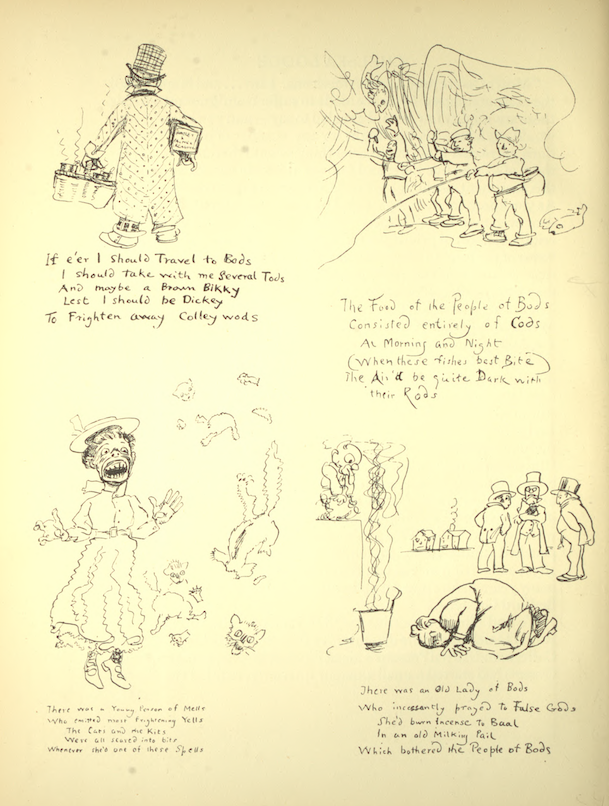 If e'er I should Travel to Bods
I should take with me Several Tods
And maybe a Brown Bikky
Lest I should be Dickey
To Frighten away Colleywods
The Food of the People of Bods
Consisted entirely of Cods
At Morning and Night
(When these fishes best Bite)
The Air'd be quite Dark with
their Rods
There was a Young Person of Mells
Who emitted most frightening Yells
The Cats and the Kits
Were all scared into bits
Whenever she'd one of these Spells
There was an Old Lady of Bods
Who incessantly prayed to False Gods
She'd burn Incense to Baal
In an old Milking Pail
Which bothered the People of Bods